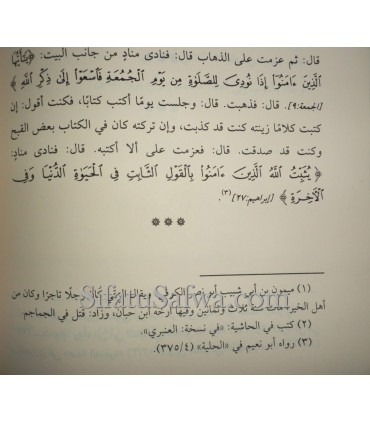 قال: ثم عزمت على الذهاب قال: فنادى منادٍ من جانب البيت: ﴿يَٰٓأَيُّهَا
ٱلَّذِينَ ءَامَنُوٓا۟ إِذَا نُودِىَ لِلصَّلَوٰةِ مِن يَوْمِ ٱلْجُمُعَةِ فَٱسْعَوْا۟ إِلَىٰ ذِكْرِ ٱللَّهِ ﴾
[الجمعة:٩]. قال: فذهبت. قال: وجلست يومًا أكتب كتابًا، فكنت أقول: إن
كتبت كلامًا زينته كنت قد كذبت، وإن تركته كان في الكتاب بعض القبح
وكنت قد صدقت. قال: فعزمت على ألا أكتبه. قال: فنادى منادٍ:
﴿ يُثَبِّتُ ٱللَّهُ ٱلَّذِينَ ءَامَنُوا۟ بِٱلْقَوْلِ ٱلثَّابِتِ فِى ٱلْحَيَوٰةِ ٱلدُّنْيَا وَفِى
ٱلْءَاخِرَةِ ﴾ [إبراهيم:٢٧](٣).
***
SifatuSafwa.com
(١) ميمون بن أبي شبيب أبو نصر الكوفي، ويقال الرقي كان رجلًا تاجرًا وكان من
أهل الخير، مات سنة ثلاث وثمانين وفيها أرخه ابن حبان، وزاد: قتل في الجماجم
(٢) كتب في الحاشية: «في نسخة: العنبري».
(٣) رواه أبو نعيم في «الحلية» (٣٧٥/٤).